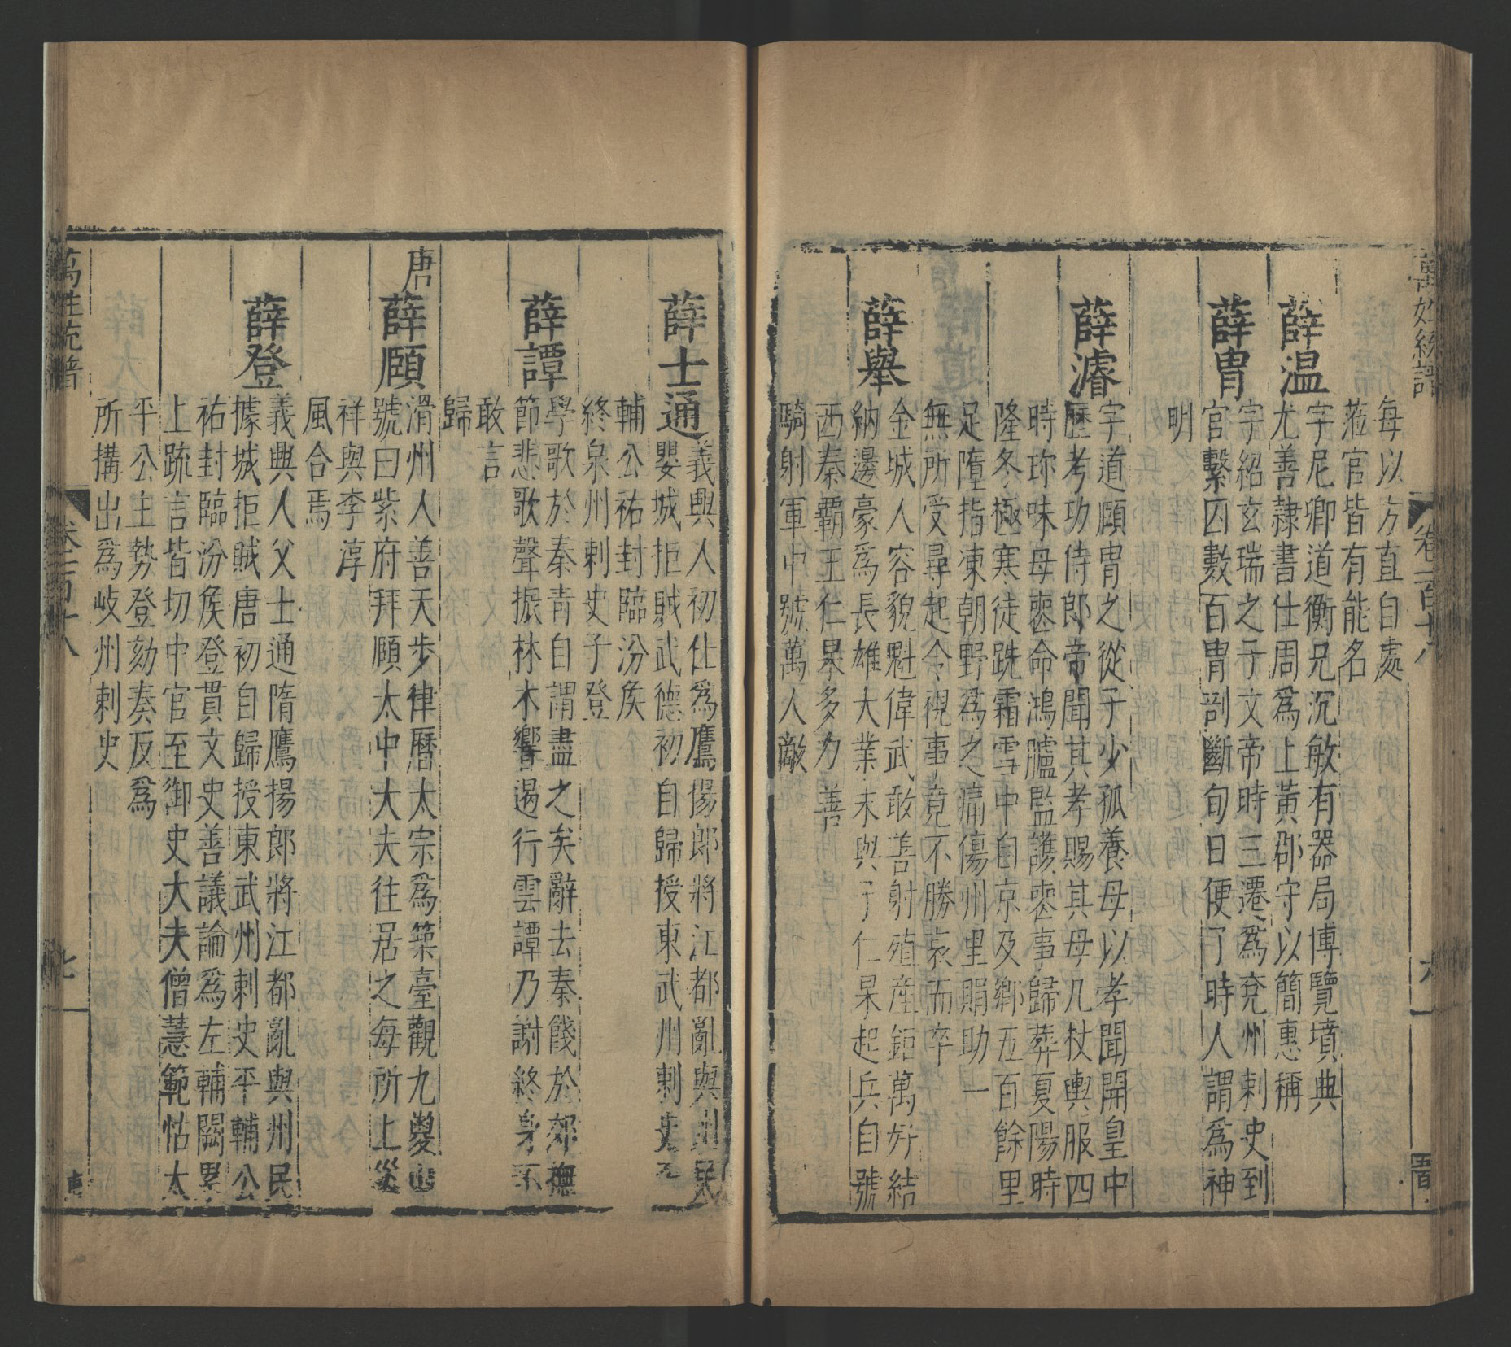 萬姓統譜 卷一百十八 六
每以方直自處
蒞官皆有能名
薛温 字尼卿道衡兄沉敏有器局博覽墳典
尤善隷書仕周爲上黃郡守以簡惠稱
薛胄 字紹玄瑞之子文帝時三遷爲兗州刺史到
官繫囚數百胄剖斷旬日便了時人謂爲神
明
薛濬 字道賾胄之從子少孤養母以孝聞開皇中
歷考功侍郎帝聞其孝賜其母几杖輿服四
時珎味母喪命鴻臚監護喪事歸葬夏陽時
隆冬極寒徒跣霜雪中自京及鄉五百餘里
足隋指凍朝野爲之痛傷州里賵助一
無所受尋起令視事竟不勝哀而卒
薛舉 金城人容貌魁偉武敢善射殖産鉅萬好結
納邊豪爲長雄大業末與子仁杲起兵自號
西秦霸王仁杲多力善
騎射軍中號萬人敵
薛士通 義興人初仕爲鷹揚郎將江都亂與州民
嬰城拒賊武德初自歸授東武州刺史平
輔公祏封臨汾矦
終泉州刺史子登
薛譚 學歌於秦青自謂盡之矣辭去秦餞於郊撫
節悲歌聲振林木響遏行雲譚乃謝終身不
敢言
歸
唐
薛頤 滑州人善天步律曆太宗爲築臺觀九嵏山
號曰紫府拜頤太中大夫往居之每所上災
祥與李淳
風合焉
薛登 義興人父士通隋鷹揚郎將江都亂與州民
據城拒賊唐初自歸授東武州刺史平輔公
祏封臨汾矦登貫文史善議論爲左輔闕累
上疏言皆切中官至御史大夫僧慧範怙太
平公主勢登劾奏反爲
所搆出爲岐州刺史
萬姓統譜 卷一百十八 七